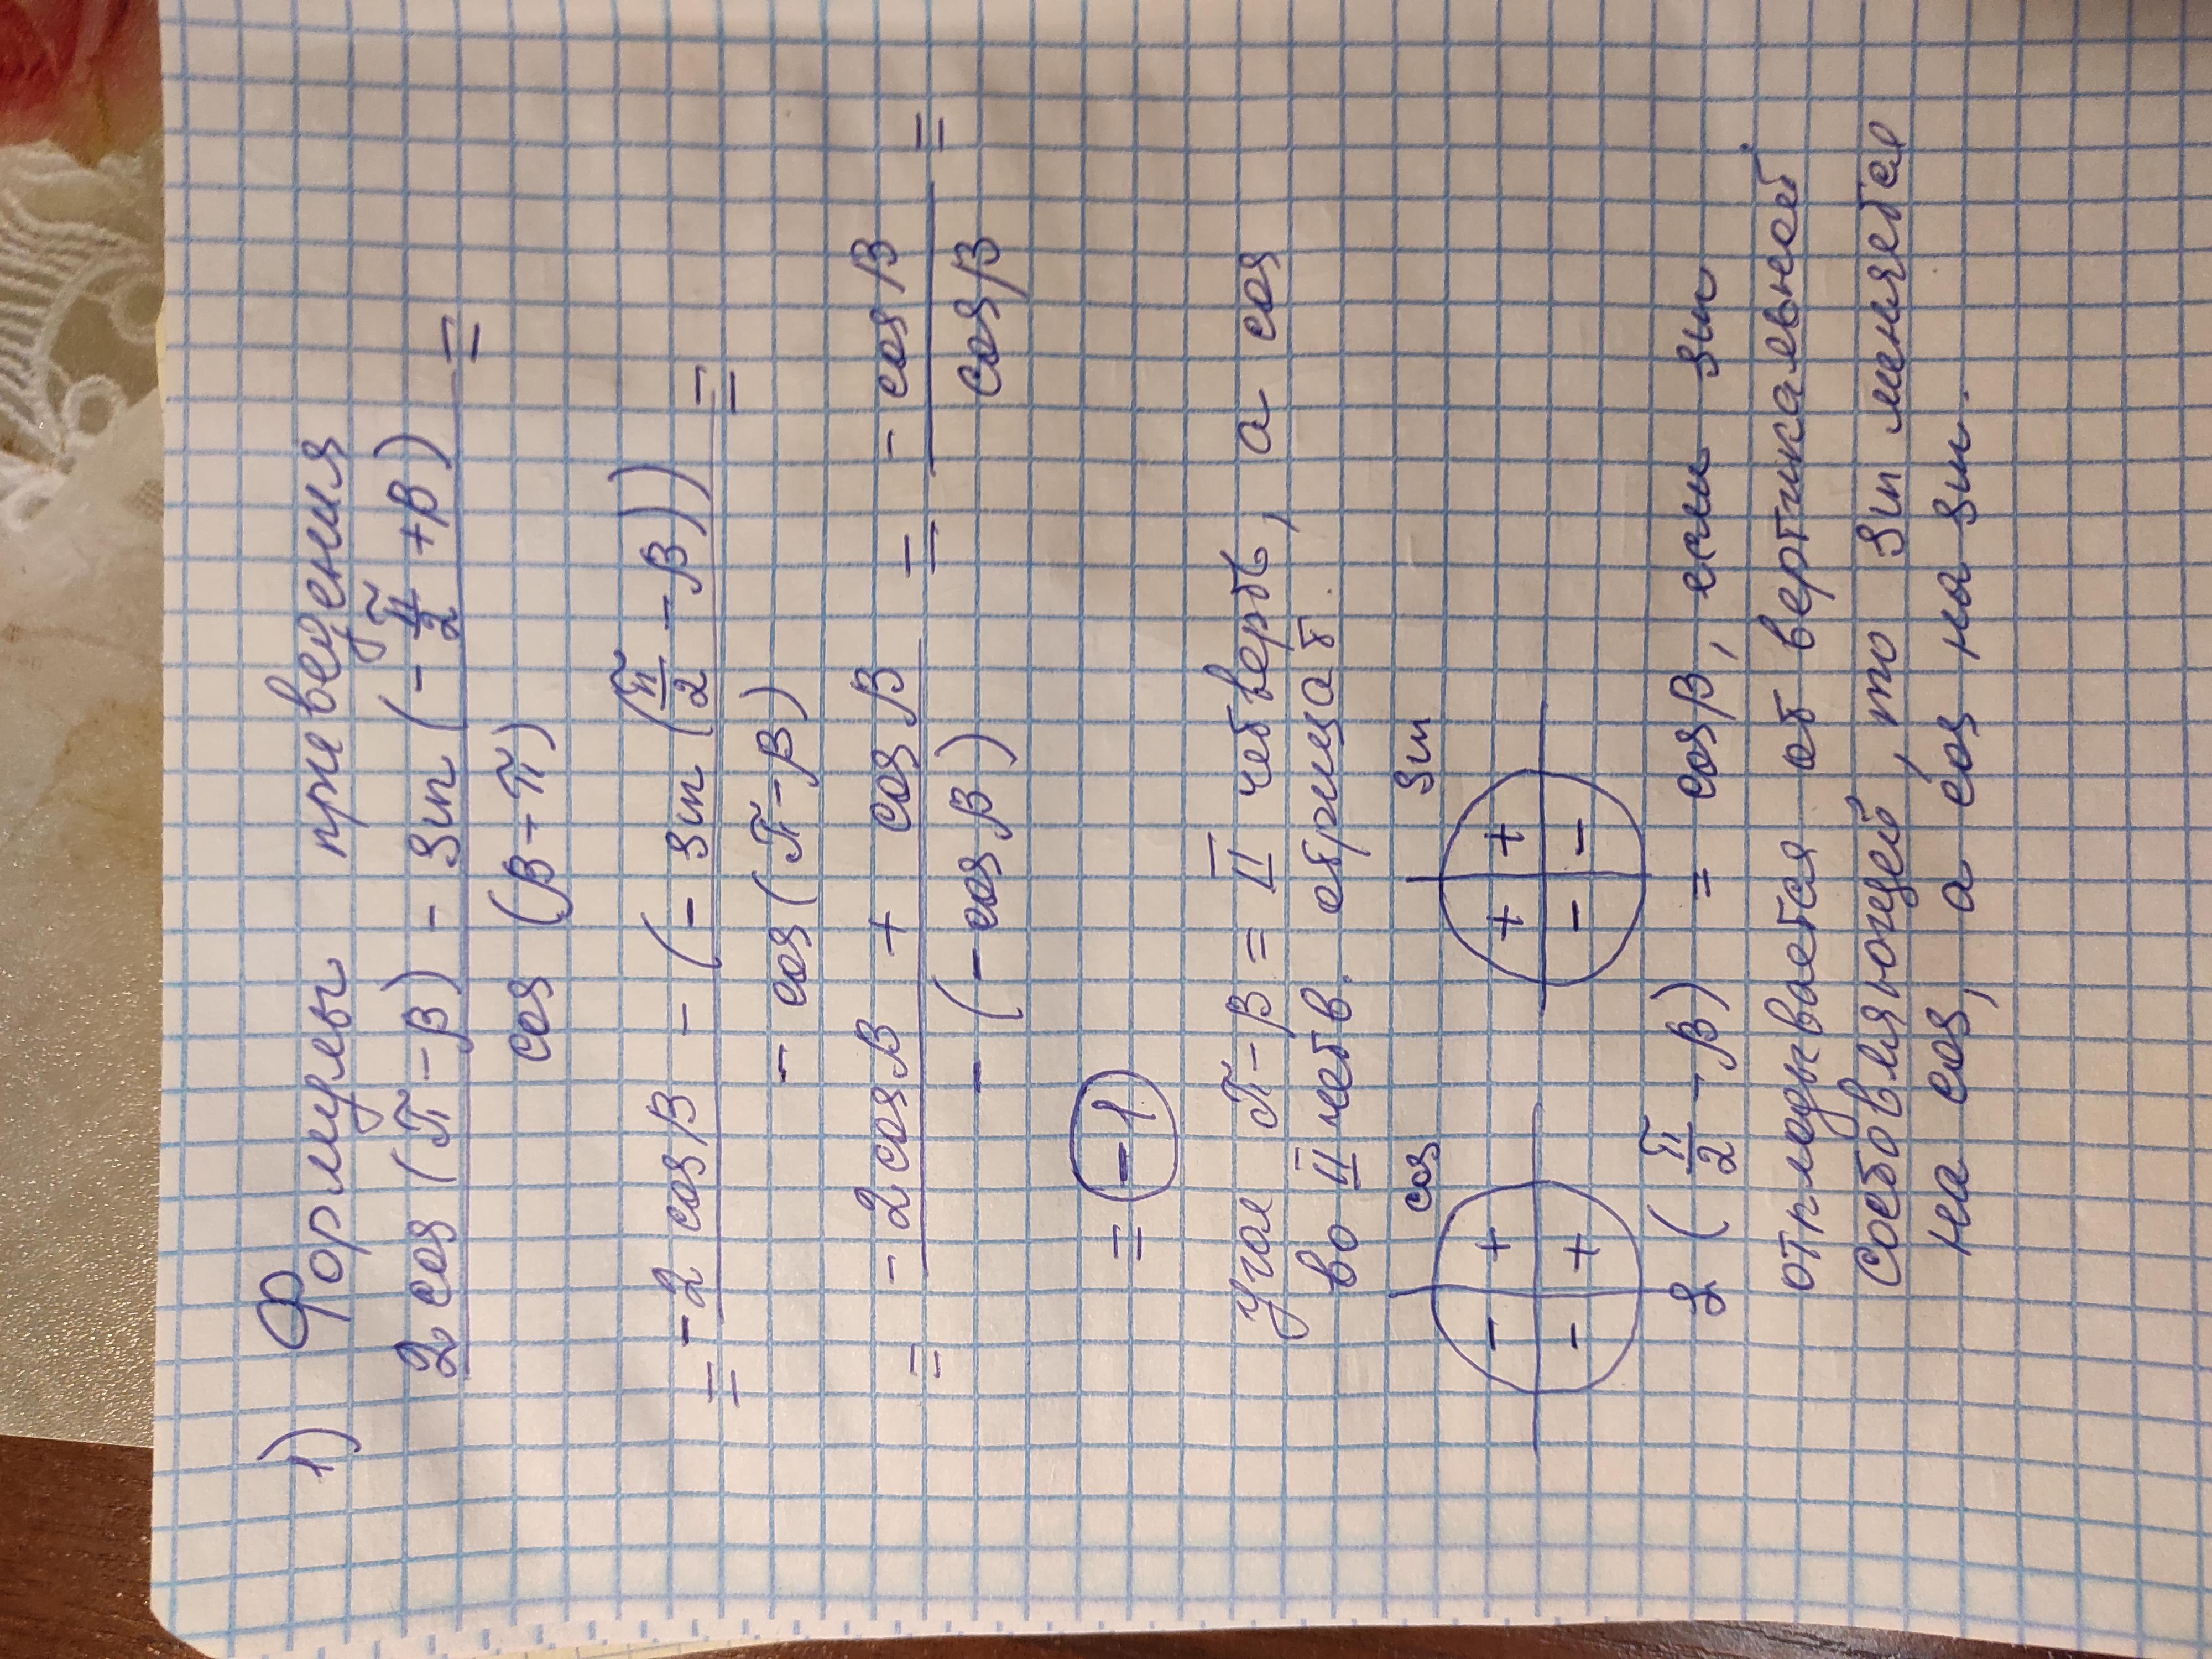 1) Формулы приведения
2 cos (π - β) - sin (- π/2 + β) =
cos (β - π)
= -2 cos β - (- sin (π/2 - β)) =
- cos (π - β)
= -2 cos β + cos β = - cos β =
- (- cos β) cos β
= -1
угол π - β = II четверть, а cos
во II четв. отрицат.
cos sin
- + + +
- + - -
(π/2 - β) = cos β, если sin
откладывается от вертикальной
составляющей, то sin меняется
на cos, а cos на sin.